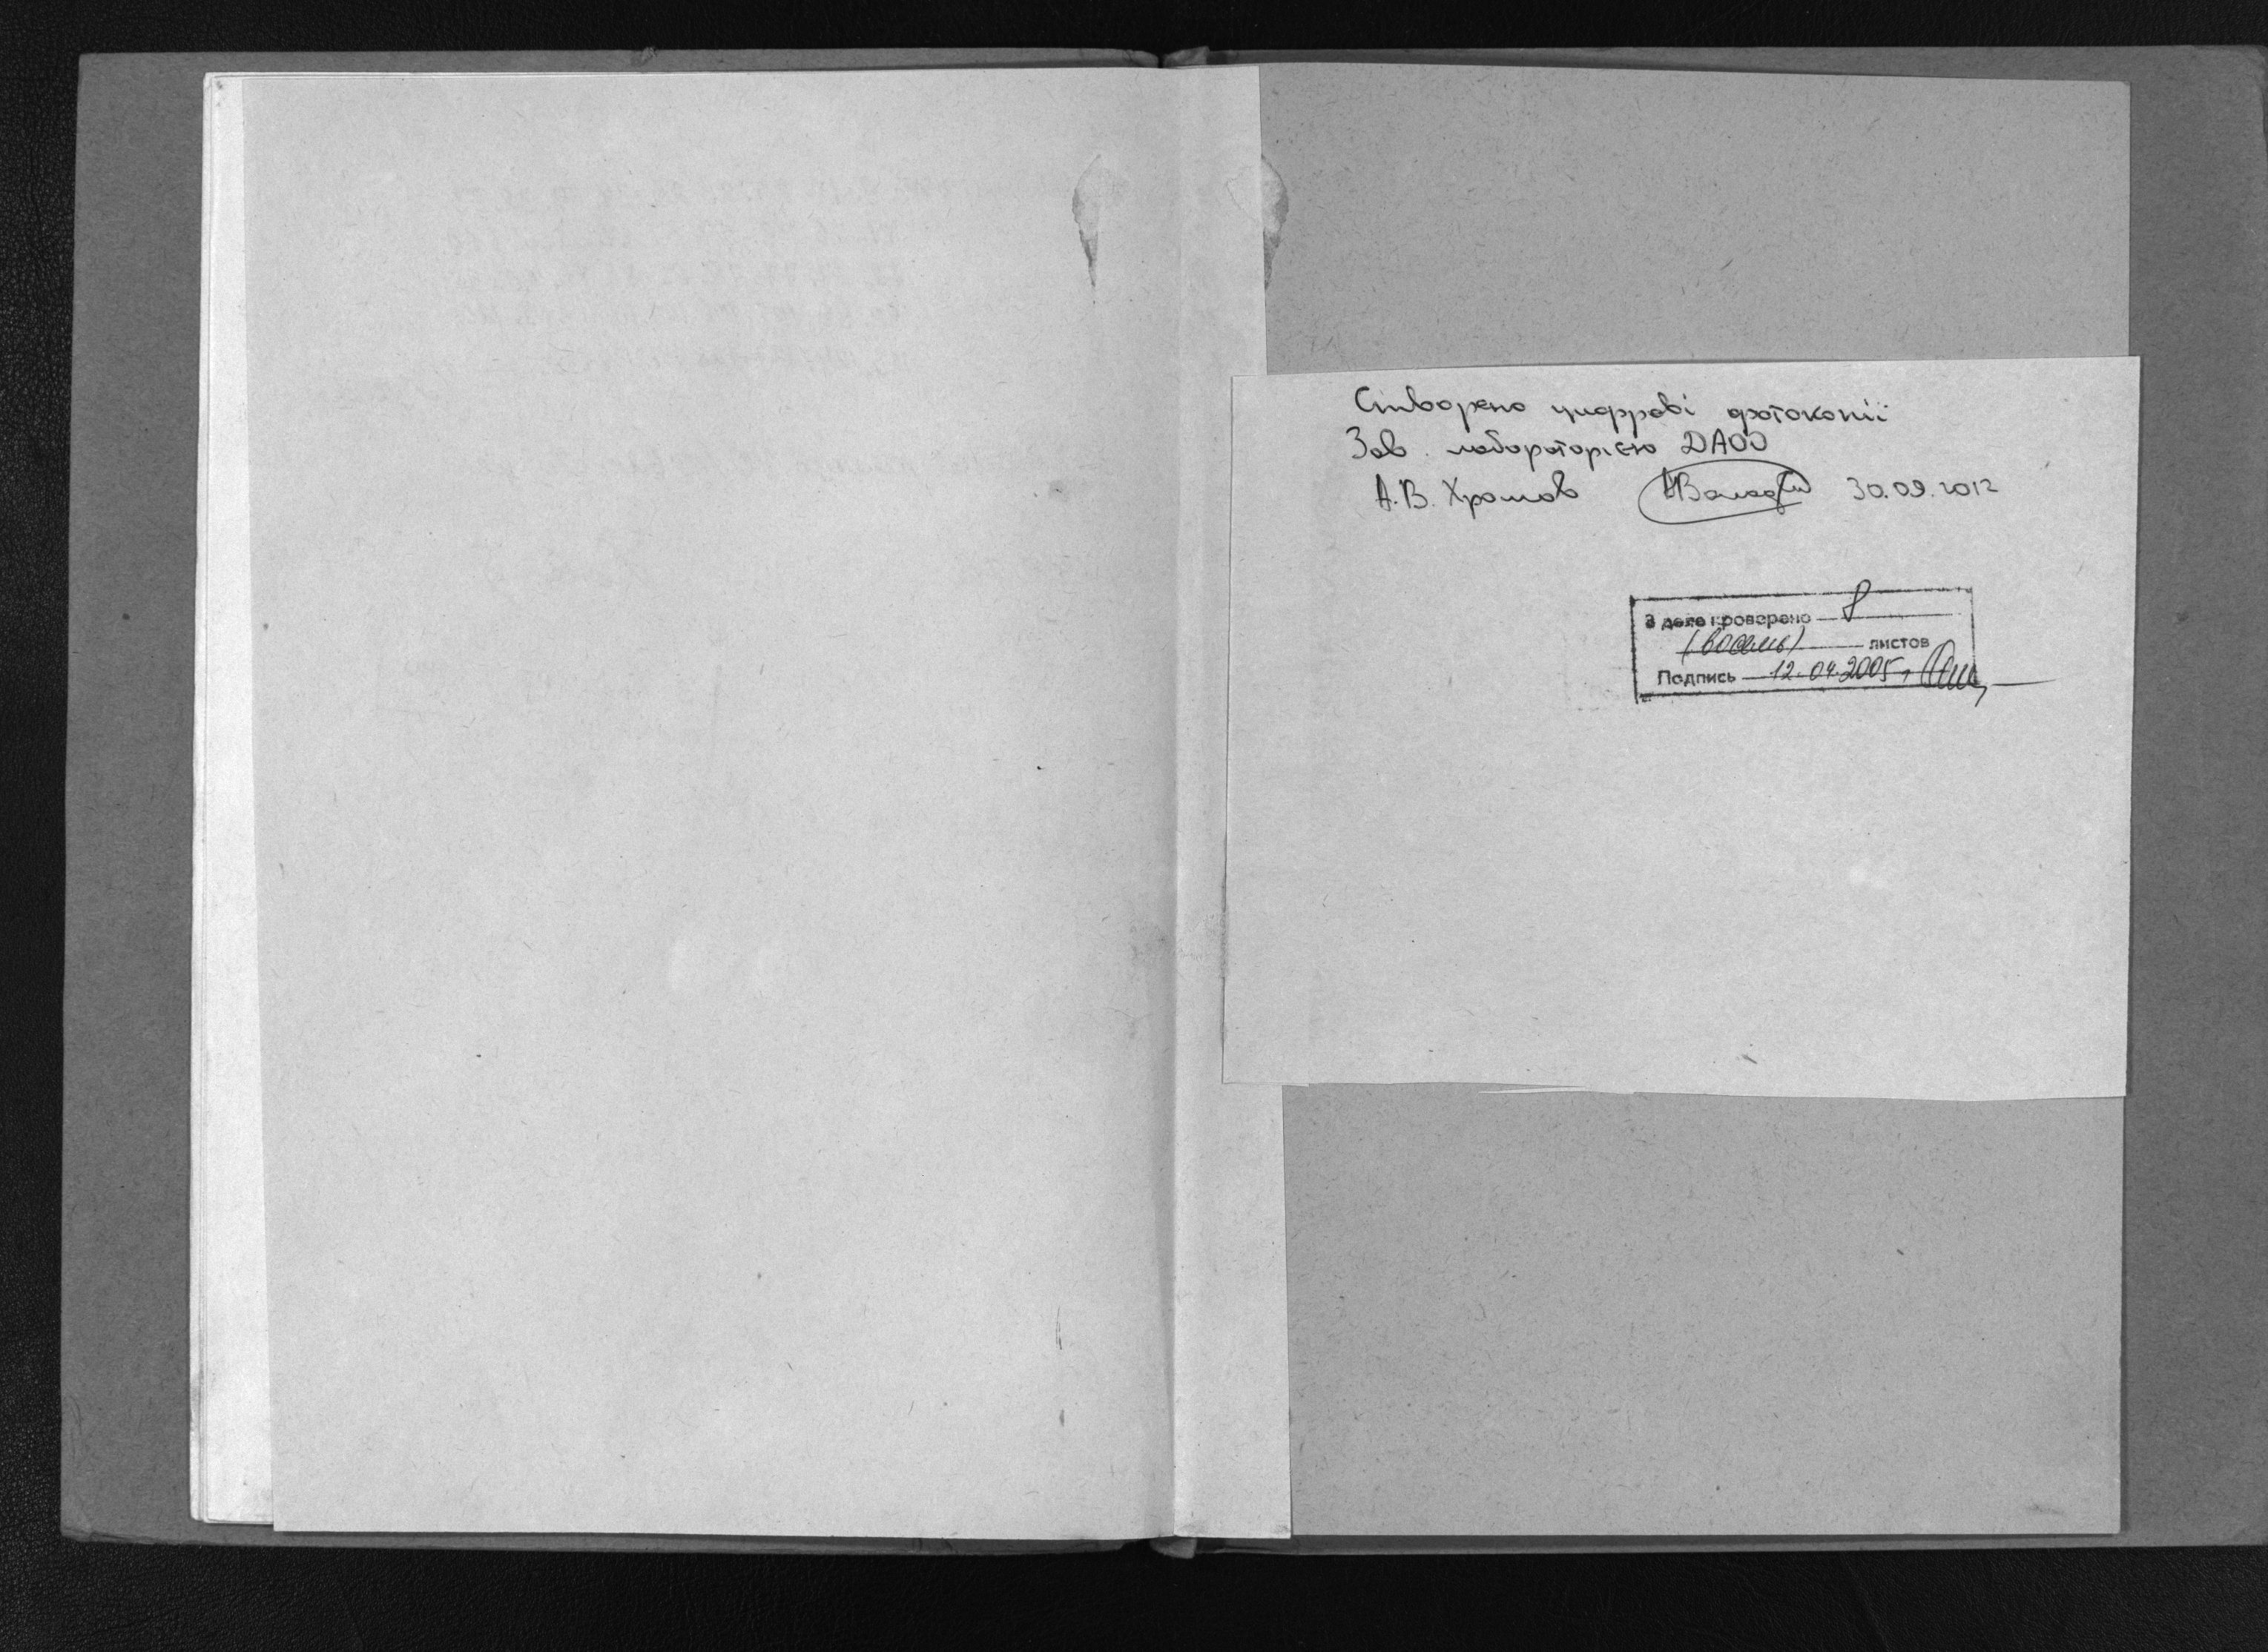 Створено цифрові фотокопії
Зав. лабораторією ДАОО
А.В. Хромов 30.09.2012
В деле проверено 8
(восемь) листов
Подпись 12.04.2005 г.